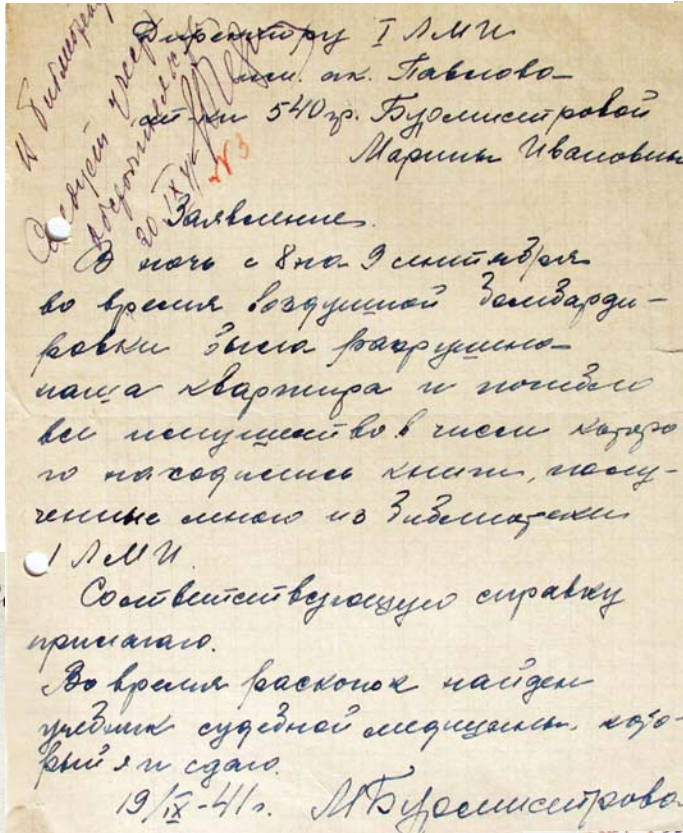 Директору I ЛМИ
им. ак. Павлова
от ст-ки 540 гр. Бурмистровой
Марины Ивановны
В библиотеку
Следует учесть
20 IX 41
№3
Заявление.
В ночь с 8 на 9 сентября
во время воздушной бомбарди-
ровки была разрушена
наша квартира и погибло
все имущество в числе которо
го находились книги, полу-
ченные мною из библиотеки
I ЛМИ.
Соответствующую справку
прилагаю.
Во время раскопок найден
учебник судебной медицины, кото-
рый я и сдаю.
19/IX-41г. МБурмистрова